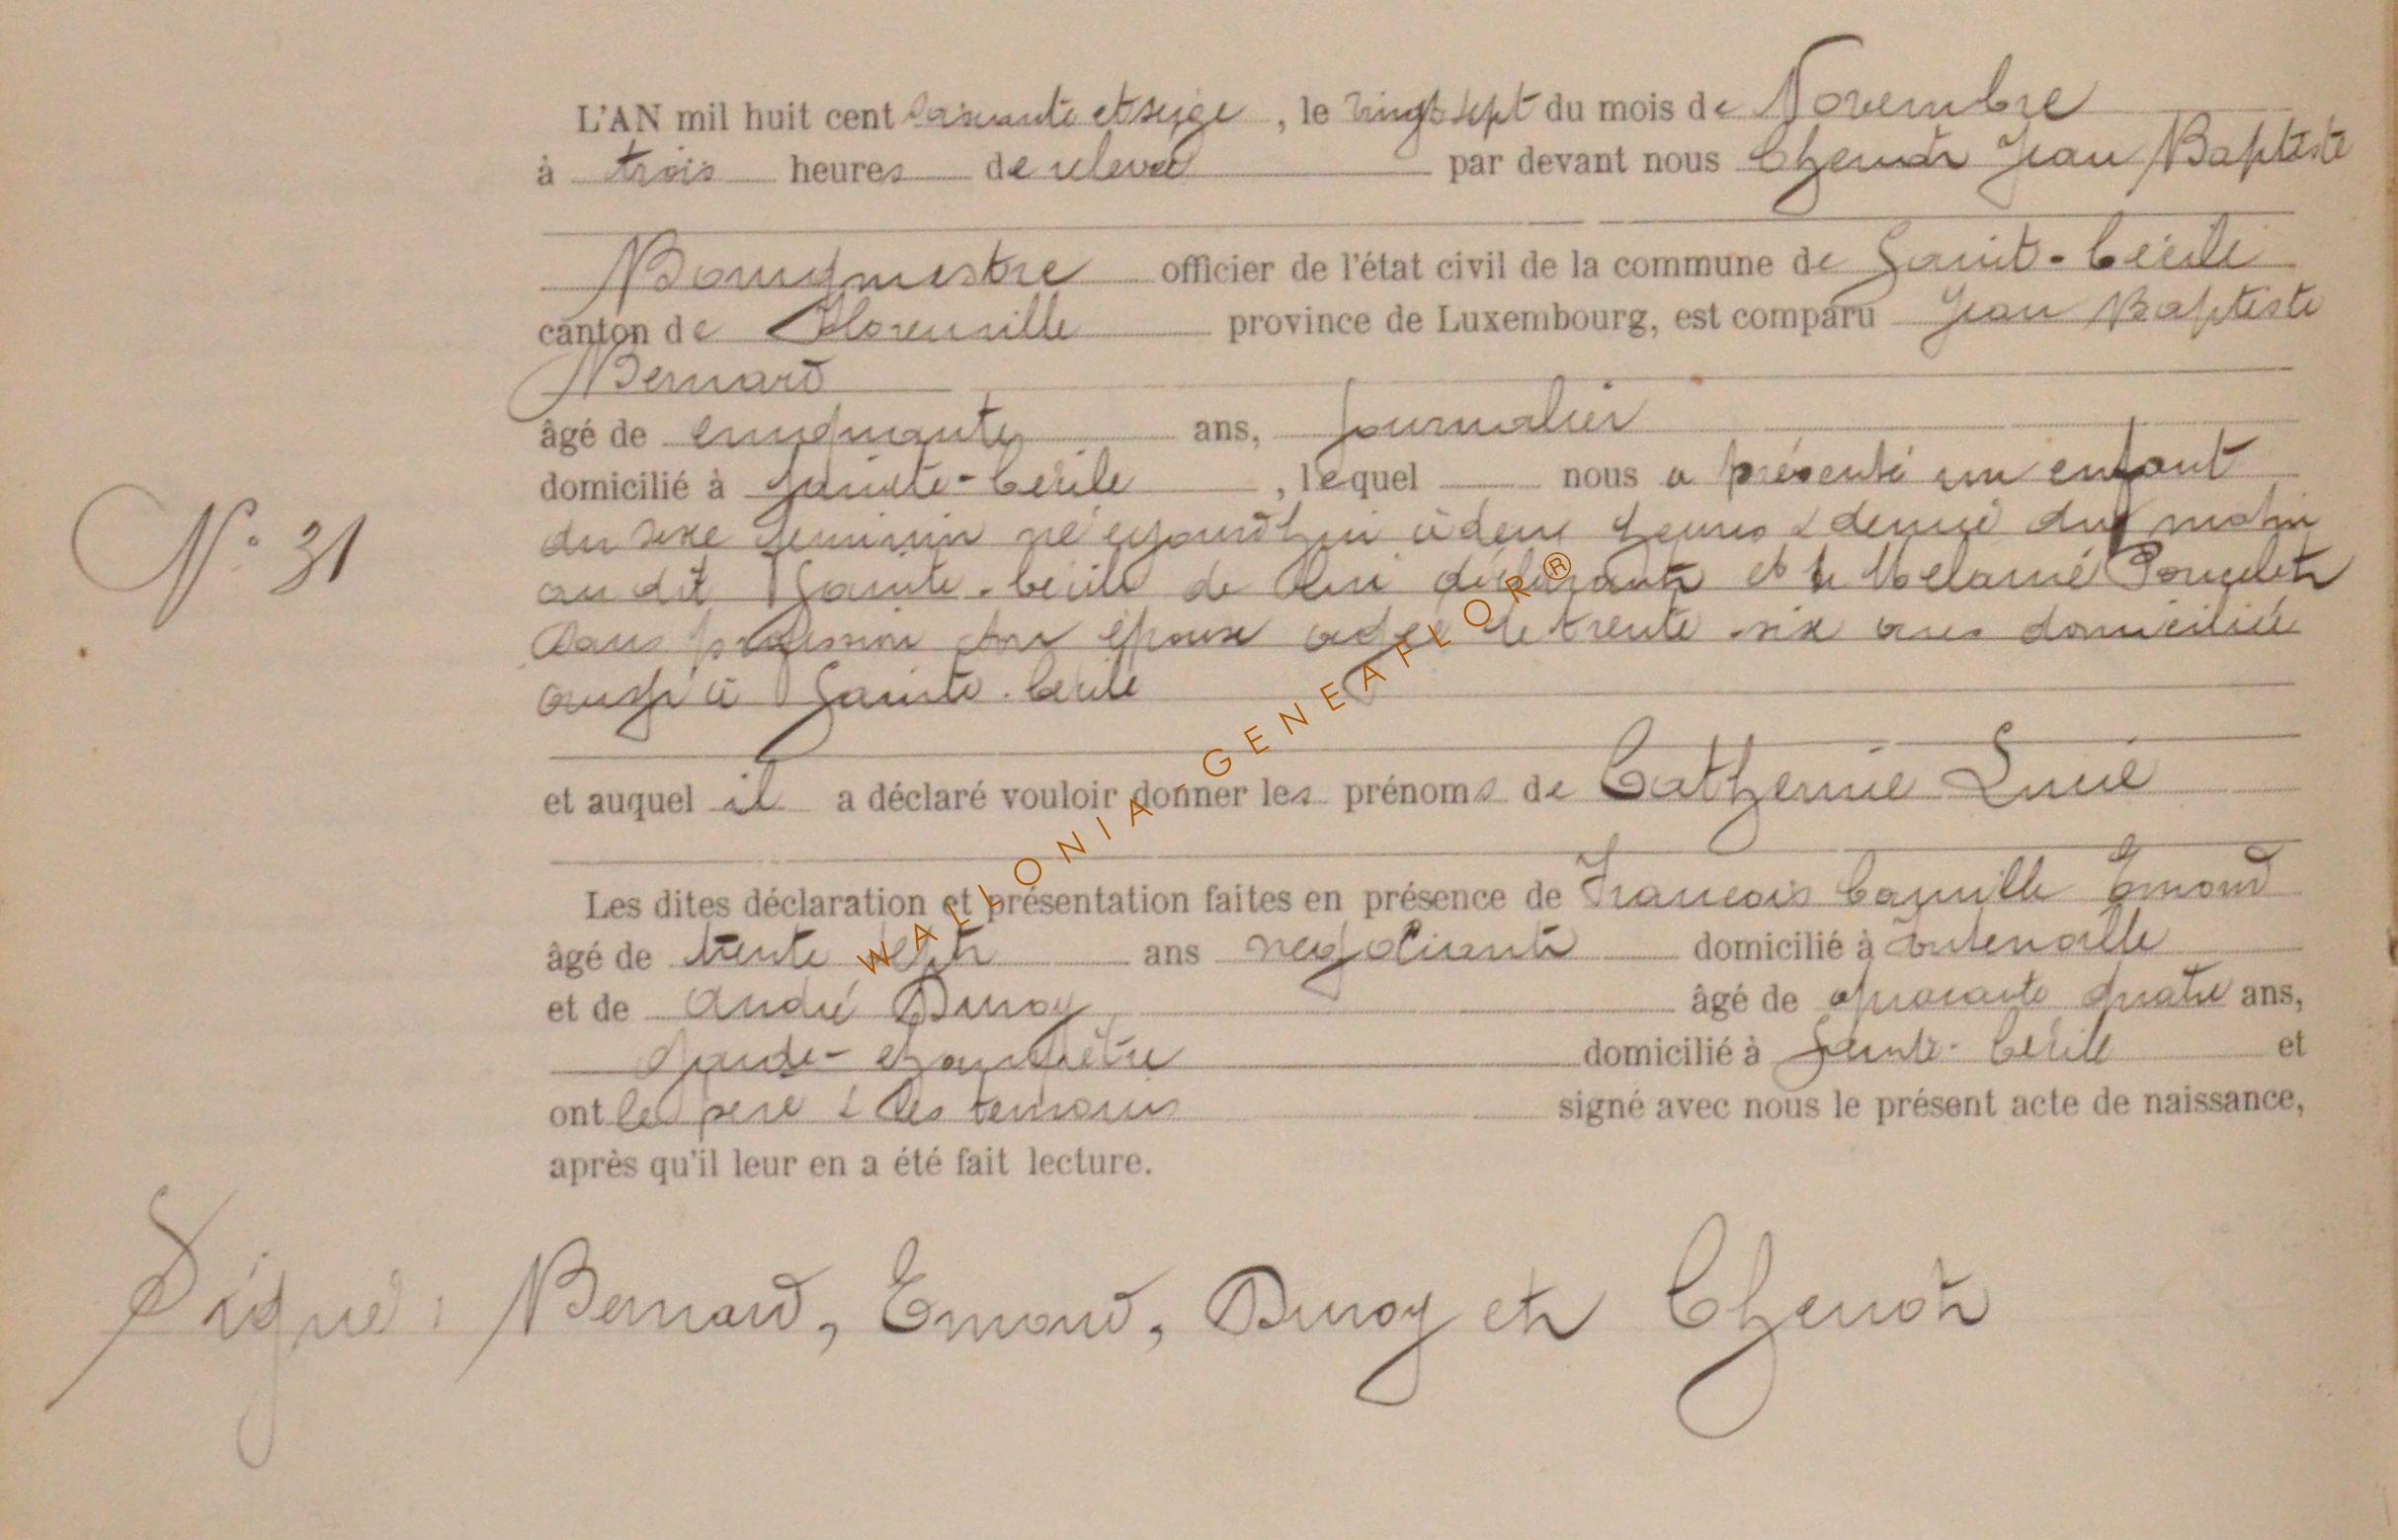 L'AN mil huit cent soixante et seize, le vingt sept du mois de Novembre
à trois heures de relevée par devant nous Chenot Jean Baptiste
Bourgmestre officier de l'état civil de la commune de Sainte-Cécile
canton de Florenville province de Luxembourg, est comparu Jean Baptiste
Bernard
âgé de cinquante ans, journalier
domicilié à Sainte-Cécile, lequel nous a présenté un enfant
N° 31
du sexe feminin né aujourd'hui à deux heures & demie du matin
au dit Sainte-Cécile de lui déclarant et de Melanie Poncelet
sans profession son épouse agée de trente-six ans domiciliée
aussi à Sainte-Cécile
et auquel il a déclaré vouloir donner les prénoms de Catherine Lucie
Les dites déclaration et présentation faites en présence de Francois Camille Emond
âgé de trente sept ans negociant domicilié à
et de André Duroy âgé de quarante quatre ans,
Garde-champêtre domicilié à Sainte-Cécile et
ont le pere & les temoins signé avec nous le présent acte de naissance,
après qu'il leur en a été fait lecture.
Signé: Bernard, Emond, Duroy et Chenot
WALLONIA-GENEAFLOR®